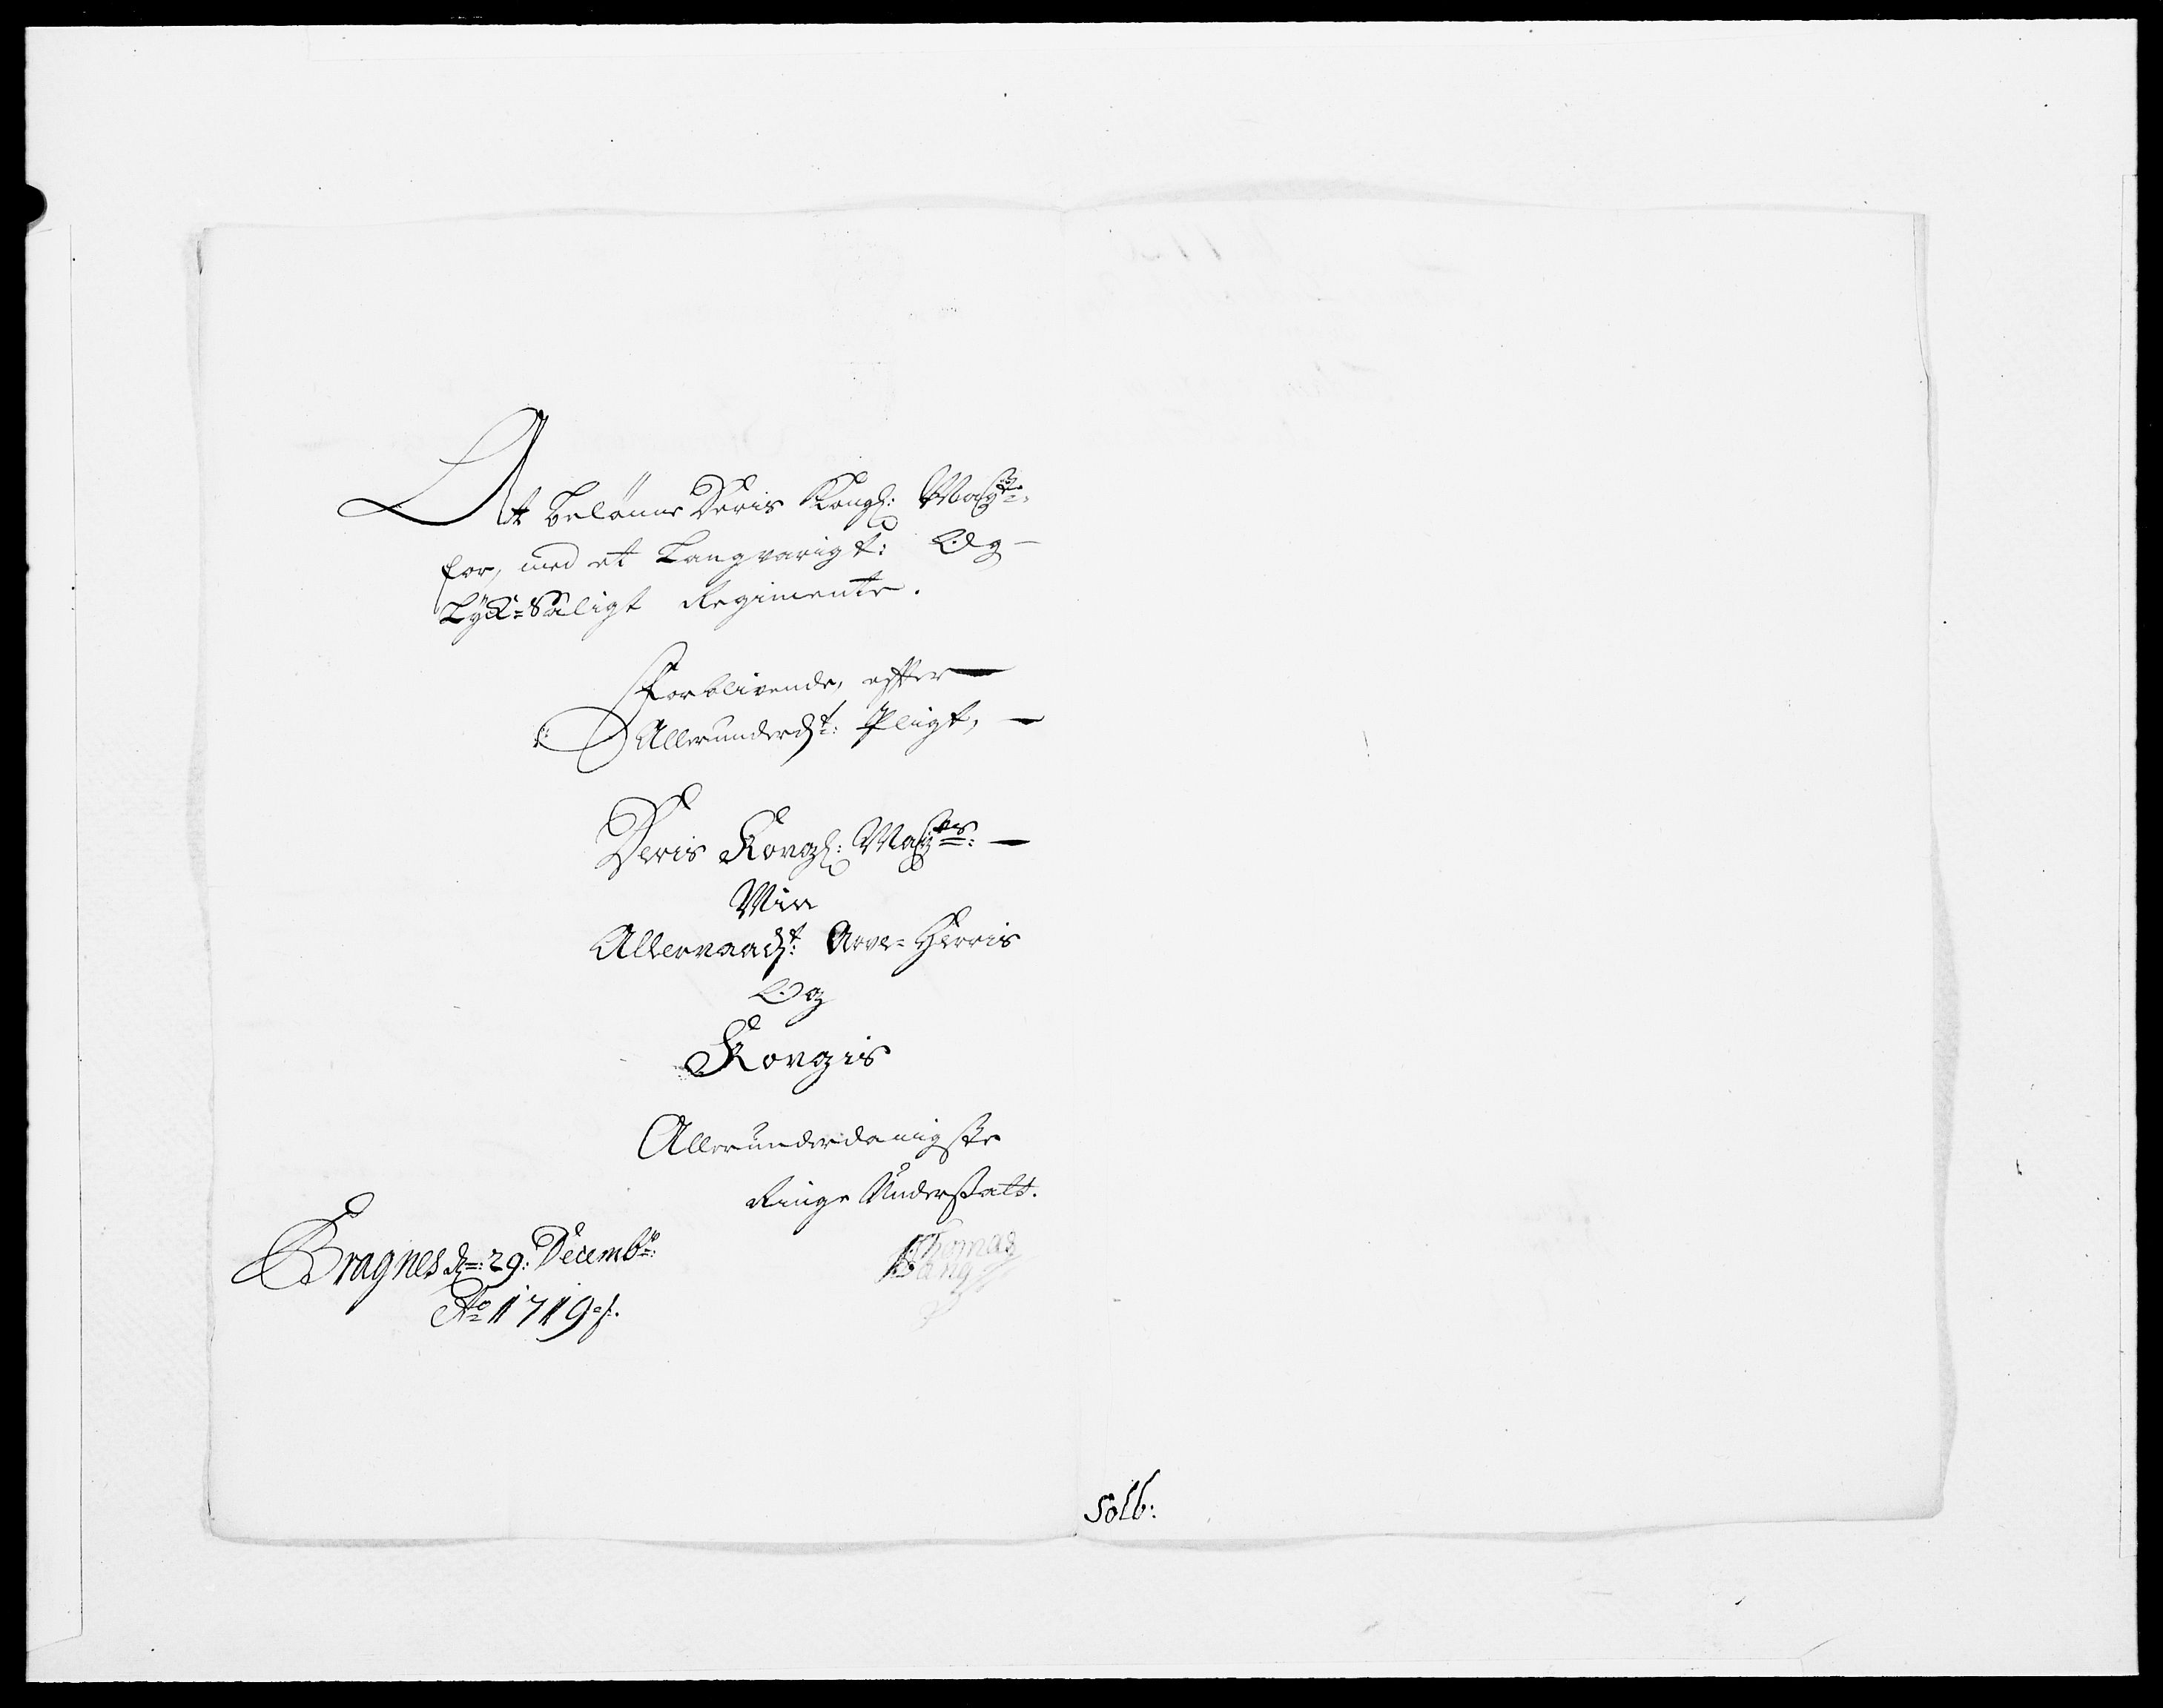 At belønne Deris Kongl: Mayts:
for, med et Langvarigt: Og
Lyck-Saligt Regimente.
Forblivende, effter
Allerunderdt: Pligt,
Deris Kongl: Mayts:
Min
Allernaadt: Arve-Herris
Og
Kongis
Allerunderdanigste
Ringe Understatt.
Bragnes dn: 29: Decembr:
Ao 1719
Thomas
Bang
Solb: